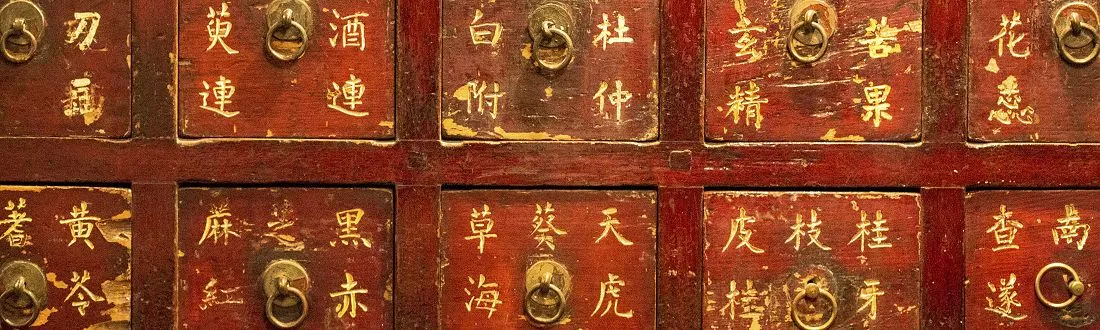 刀
酒連
萸連
杜仲
白附
苦果
玄精
花
黃芩
蓍
黑赤
芝
麻紅
天虎
葵
草海
桂牙
枝
皮桂
南
查遂